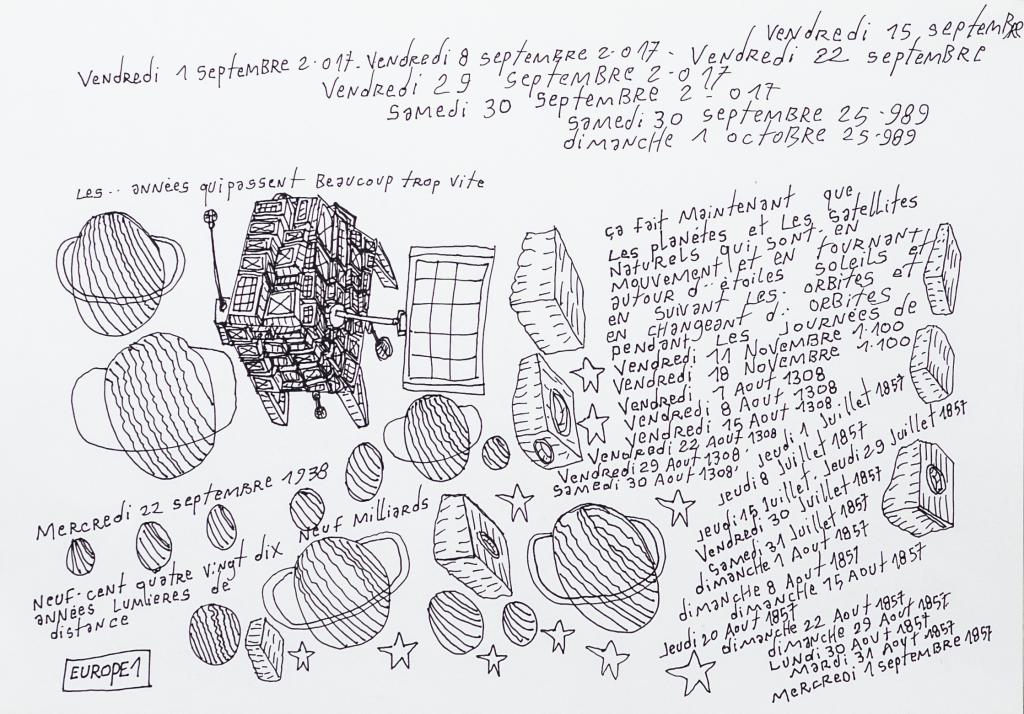 Vendredi 15 septembre
Vendredi 1 septembre 2.017. Vendredi 8 septembre 2.017. Vendredi 22 septembre
Vendredi 29 septembre 2.017
samedi 30 septembre 2.017
samedi 30 septembre 25.989
dimanche 1 octobre 25.989
Les.. années qui passent Beaucoup trop vite
ça fait Maintenant que
Les planètes et Les satellites
Naturels qui sont en
Mouvement et en tournant
autour d.. étoiles soleils et
en suivant Les orbites et
en changeant d.. orbites
pendant Les journées de
Vendredi 11 Novembre 1.100
Vendredi 18 Novembre 1.100
Vendredi 1 Aout 1308
Vendredi 8 Aout 1308
Vendredi 15 Aout 1308
Vendredi 22 Aout 1308
Vendredi 29 Aout 1308
samedi 30 Aout 1308
jeudi 1 juillet 1857
jeudi 8 juillet 1857
jeudi 15 juillet, jeudi 29 juillet 1857
Vendredi 30 juillet 1857
samedi 31 juillet 1857
dimanche 1 Aout 1857
dimanche 8 Aout 1857
dimanche 15 Aout 1857
jeudi 20 Aout 1857
dimanche 22 Aout 1857
dimanche 29 Aout 1857
Lundi 30 Aout 1857
Mardi 31 Aout 1857
Mercredi 1 septembre 1857
Mercredi 22 septembre 1938
Neuf-cent quatre vingt dix Neuf Milliards
années Lumières de
distance
EUROPE1